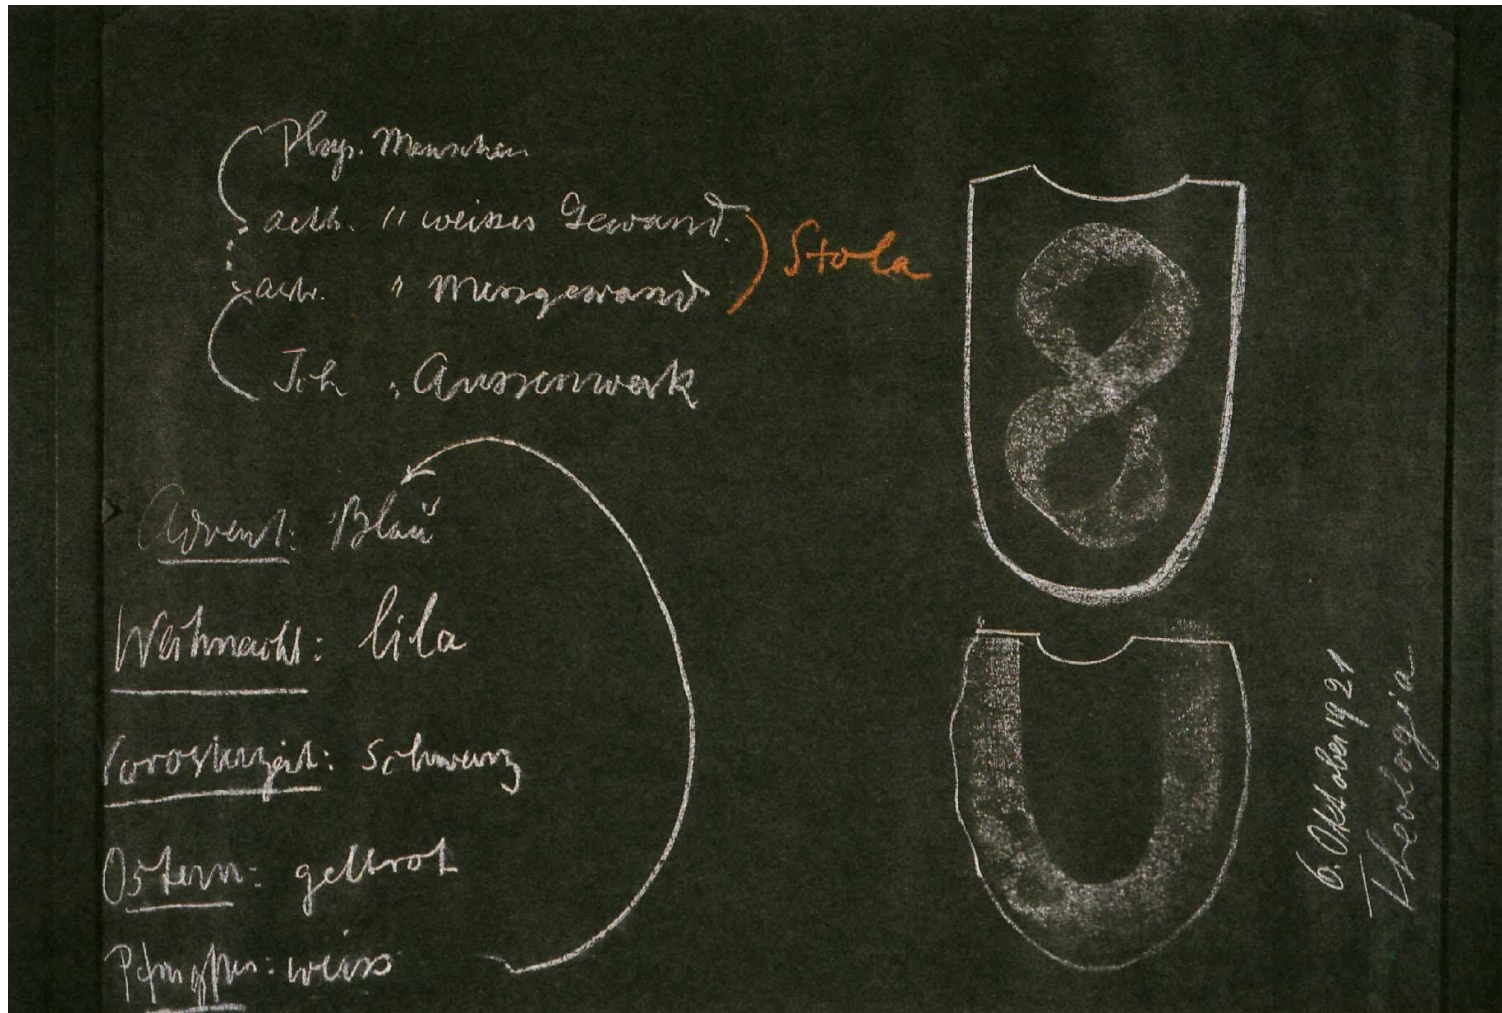 Phys. Menschen
aeth. " weisses Gewand
Stola
astr. " Messgewand
Ich : Aussenwerk
Advent: Blau
Weihnacht: lila
Vorosterzeit: Schwarz
Ostern: gelbrot
Pfingsten: weiss
6. Oktober 1921
Theologia